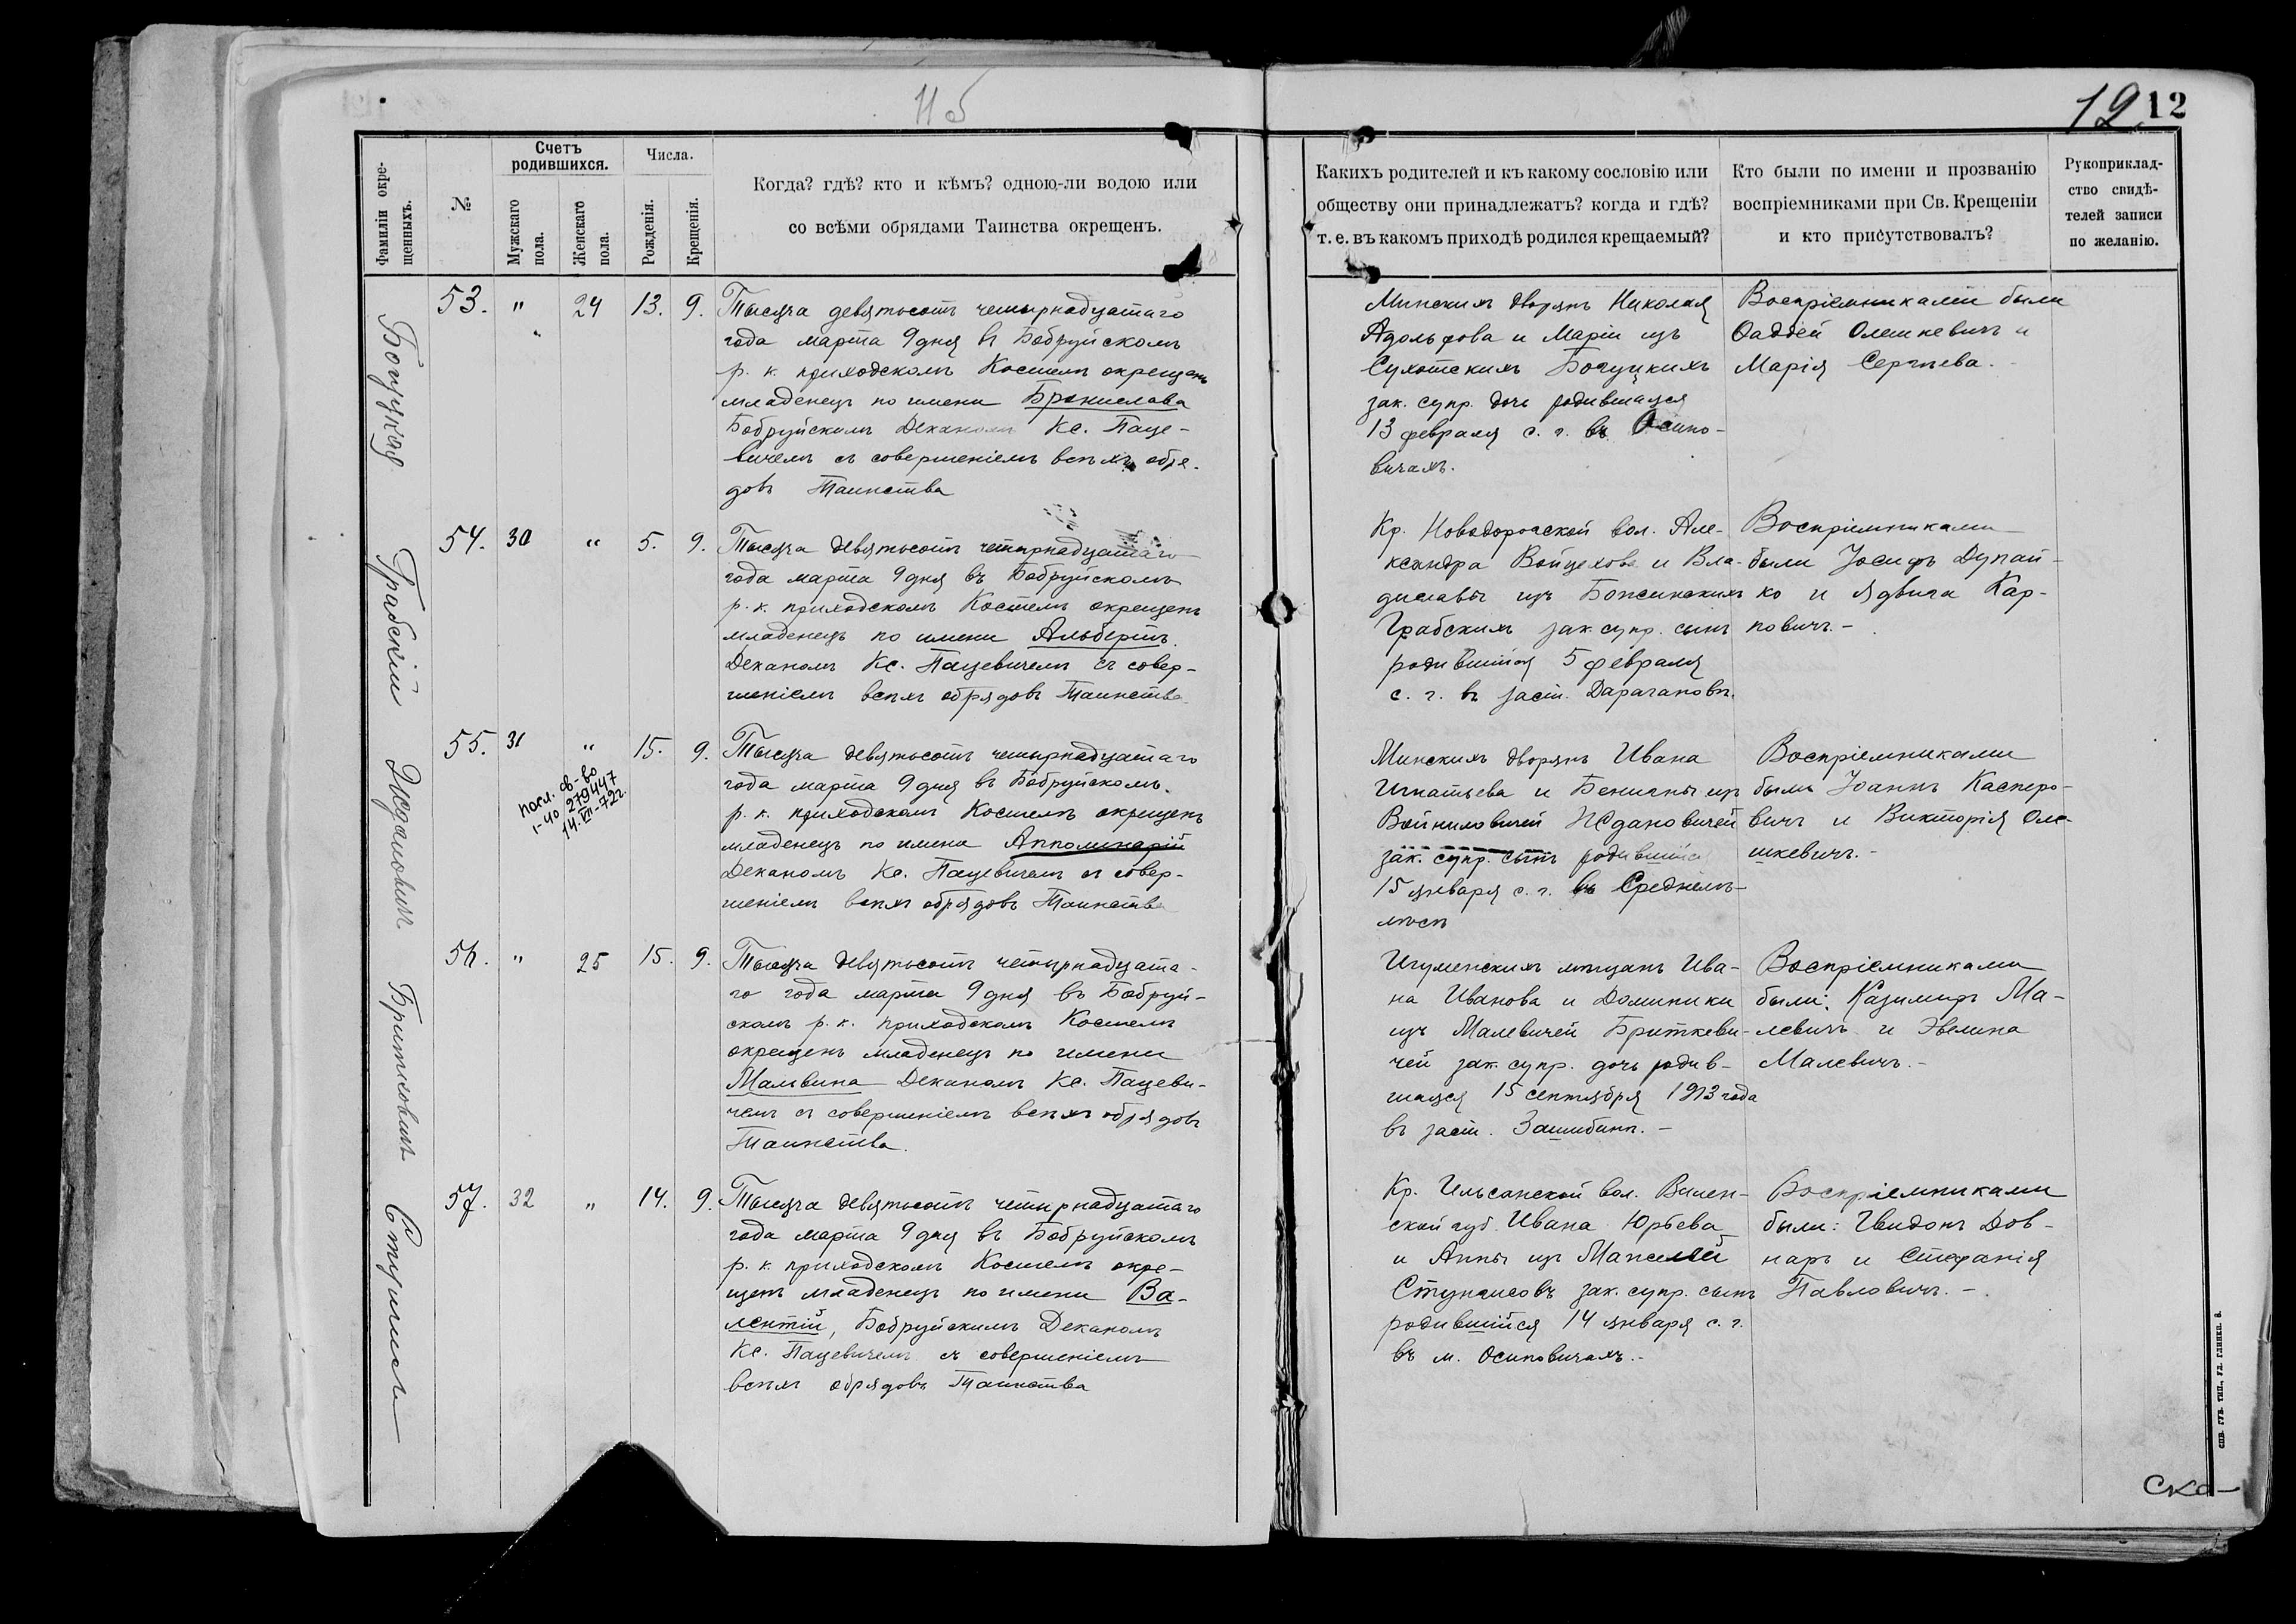 11 б
12 12
Фамиліи окре-
щенныхъ.
№
Счетъ
родившихся.
Мужскаго
пола.
Женскаго
пола.
Числа.
Рожденія.
Крещенія.
Когда? гдѣ? кто и кѣмъ? одною-ли водою или
со всѣми обрядами Таинства окрещенъ.
Какихъ родителей и къ какому сословію или
обществу они принадлежатъ? когда и гдѣ?
т. е. въ какомъ приходѣ родился крещаемый?
Кто были по имени и прозванію
воспріемниками при Св. Крещеніи
и кто присутствовалъ?
Рукоприклад-
ство свидѣ-
телей записи
по желанію.
Богуцкая
53. " 24 13. 9.
Тысяча девятьсотъ четырнадцатаго
года марта 9 дня въ Бобруйскомъ
р. к. приходскомъ Костелѣ окрещенъ
младенецъ по имени Бронислава
Бобруйскимъ Деканомъ Кс. Паце-
вичемъ съ совершеніемъ всѣхъ обря-
довъ Таинства
Минскихъ дворянъ Николая
Адольфова и Маріи изъ
Сухотскихъ Богуцкихъ
зак. супр. дочь родившаяся
13 февраля с. г. въ Осипо-
вичахъ.
Воспріемниками были
Ѳаддей Олешкевичъ и
Марія Сергѣева.
Грабскій
54. 30 " 5. 9.
Тысяча девятьсотъ четырнадцатаго
года марта 9 дня въ Бобруйскомъ
р. к. приходскомъ Костелѣ окрещенъ
младенецъ по имени Альбертъ
Деканомъ Кс. Пацевичемъ съ совер-
шеніемъ всѣхъ обрядовъ Таинства
Кр. Новодорогской вол. Але-
ксандра Войцехова и Вла-
диславы изъ
Грабскихъ зак. супр. сынъ
родившійся 5 февраля
с. г. въ заст. Дарагановѣ.
Воспріемниками
были Іосифъ Дупай-
ко и Ядвига Кар-
повичъ. -
Ждановичъ
55. 31 " 15. 9.
посл. св-во
I-ЧО 279447
14.VII-72г.
Тысяча девятьсотъ четырнадцатаго
года марта 9 дня въ Бобруйскомъ
р. к. приходскомъ Костелѣ окрещенъ
младенецъ по имени Апполинарій
Деканомъ Кс. Пацевичемъ съ совер-
шеніемъ всѣхъ обрядовъ Таинства
Минскихъ дворянъ Ивана
Игнатьева и Бенигны изъ
Войниловичей Ждановичей
зак. супр. сынъ родившійся
15 января с. г. въ Среднемъ-
лѣсѣ
Воспріемниками
были Іоаннъ Касперо-
вичъ и Викторія Оле-
шкевичъ. -
Бриткевичъ
56. " 25 15. 9.
Тысяча девятьсотъ четырнадцата-
го года марта 9 дня въ Бобруй-
скомъ р. к. приходскомъ Костелѣ
окрещенъ младенецъ по имени
Мальвина Деканомъ Кс. Пацеви-
чемъ съ совершеніемъ всѣхъ обрядовъ
Таинства.
Игуменскихъ мѣщанъ Ива-
на Иванова и Доминики
изъ Малевичей Бриткеви-
чей зак. супр. дочь родив-
шаяся 15 сентября 1913 года
въ заст. -
Воспріемниками
были: Казимиръ Ма-
левичъ и Эвелина
Малевичъ. -
57. 32 " 14. 9.
Тысяча девятьсотъ четырнадцатаго
года марта 9 дня въ Бобруйскомъ
р. к. приходскомъ Костелѣ окре-
щенъ младенецъ по имени Ва-
лентій, Бобруйскимъ Деканомъ
Кс. Пацевичемъ съ совершеніемъ
всѣхъ обрядовъ Таинства
Кр. вол. Вилен-
ской губ. Ивана Юрьева
и Анны изъ
зак. супр. сынъ
родившійся 14 января с. г.
въ м. Осиповичахъ. -
Воспріемниками
были: Гвидонъ Дов-
наръ и Стефанія
Павловичъ. -
Ска-